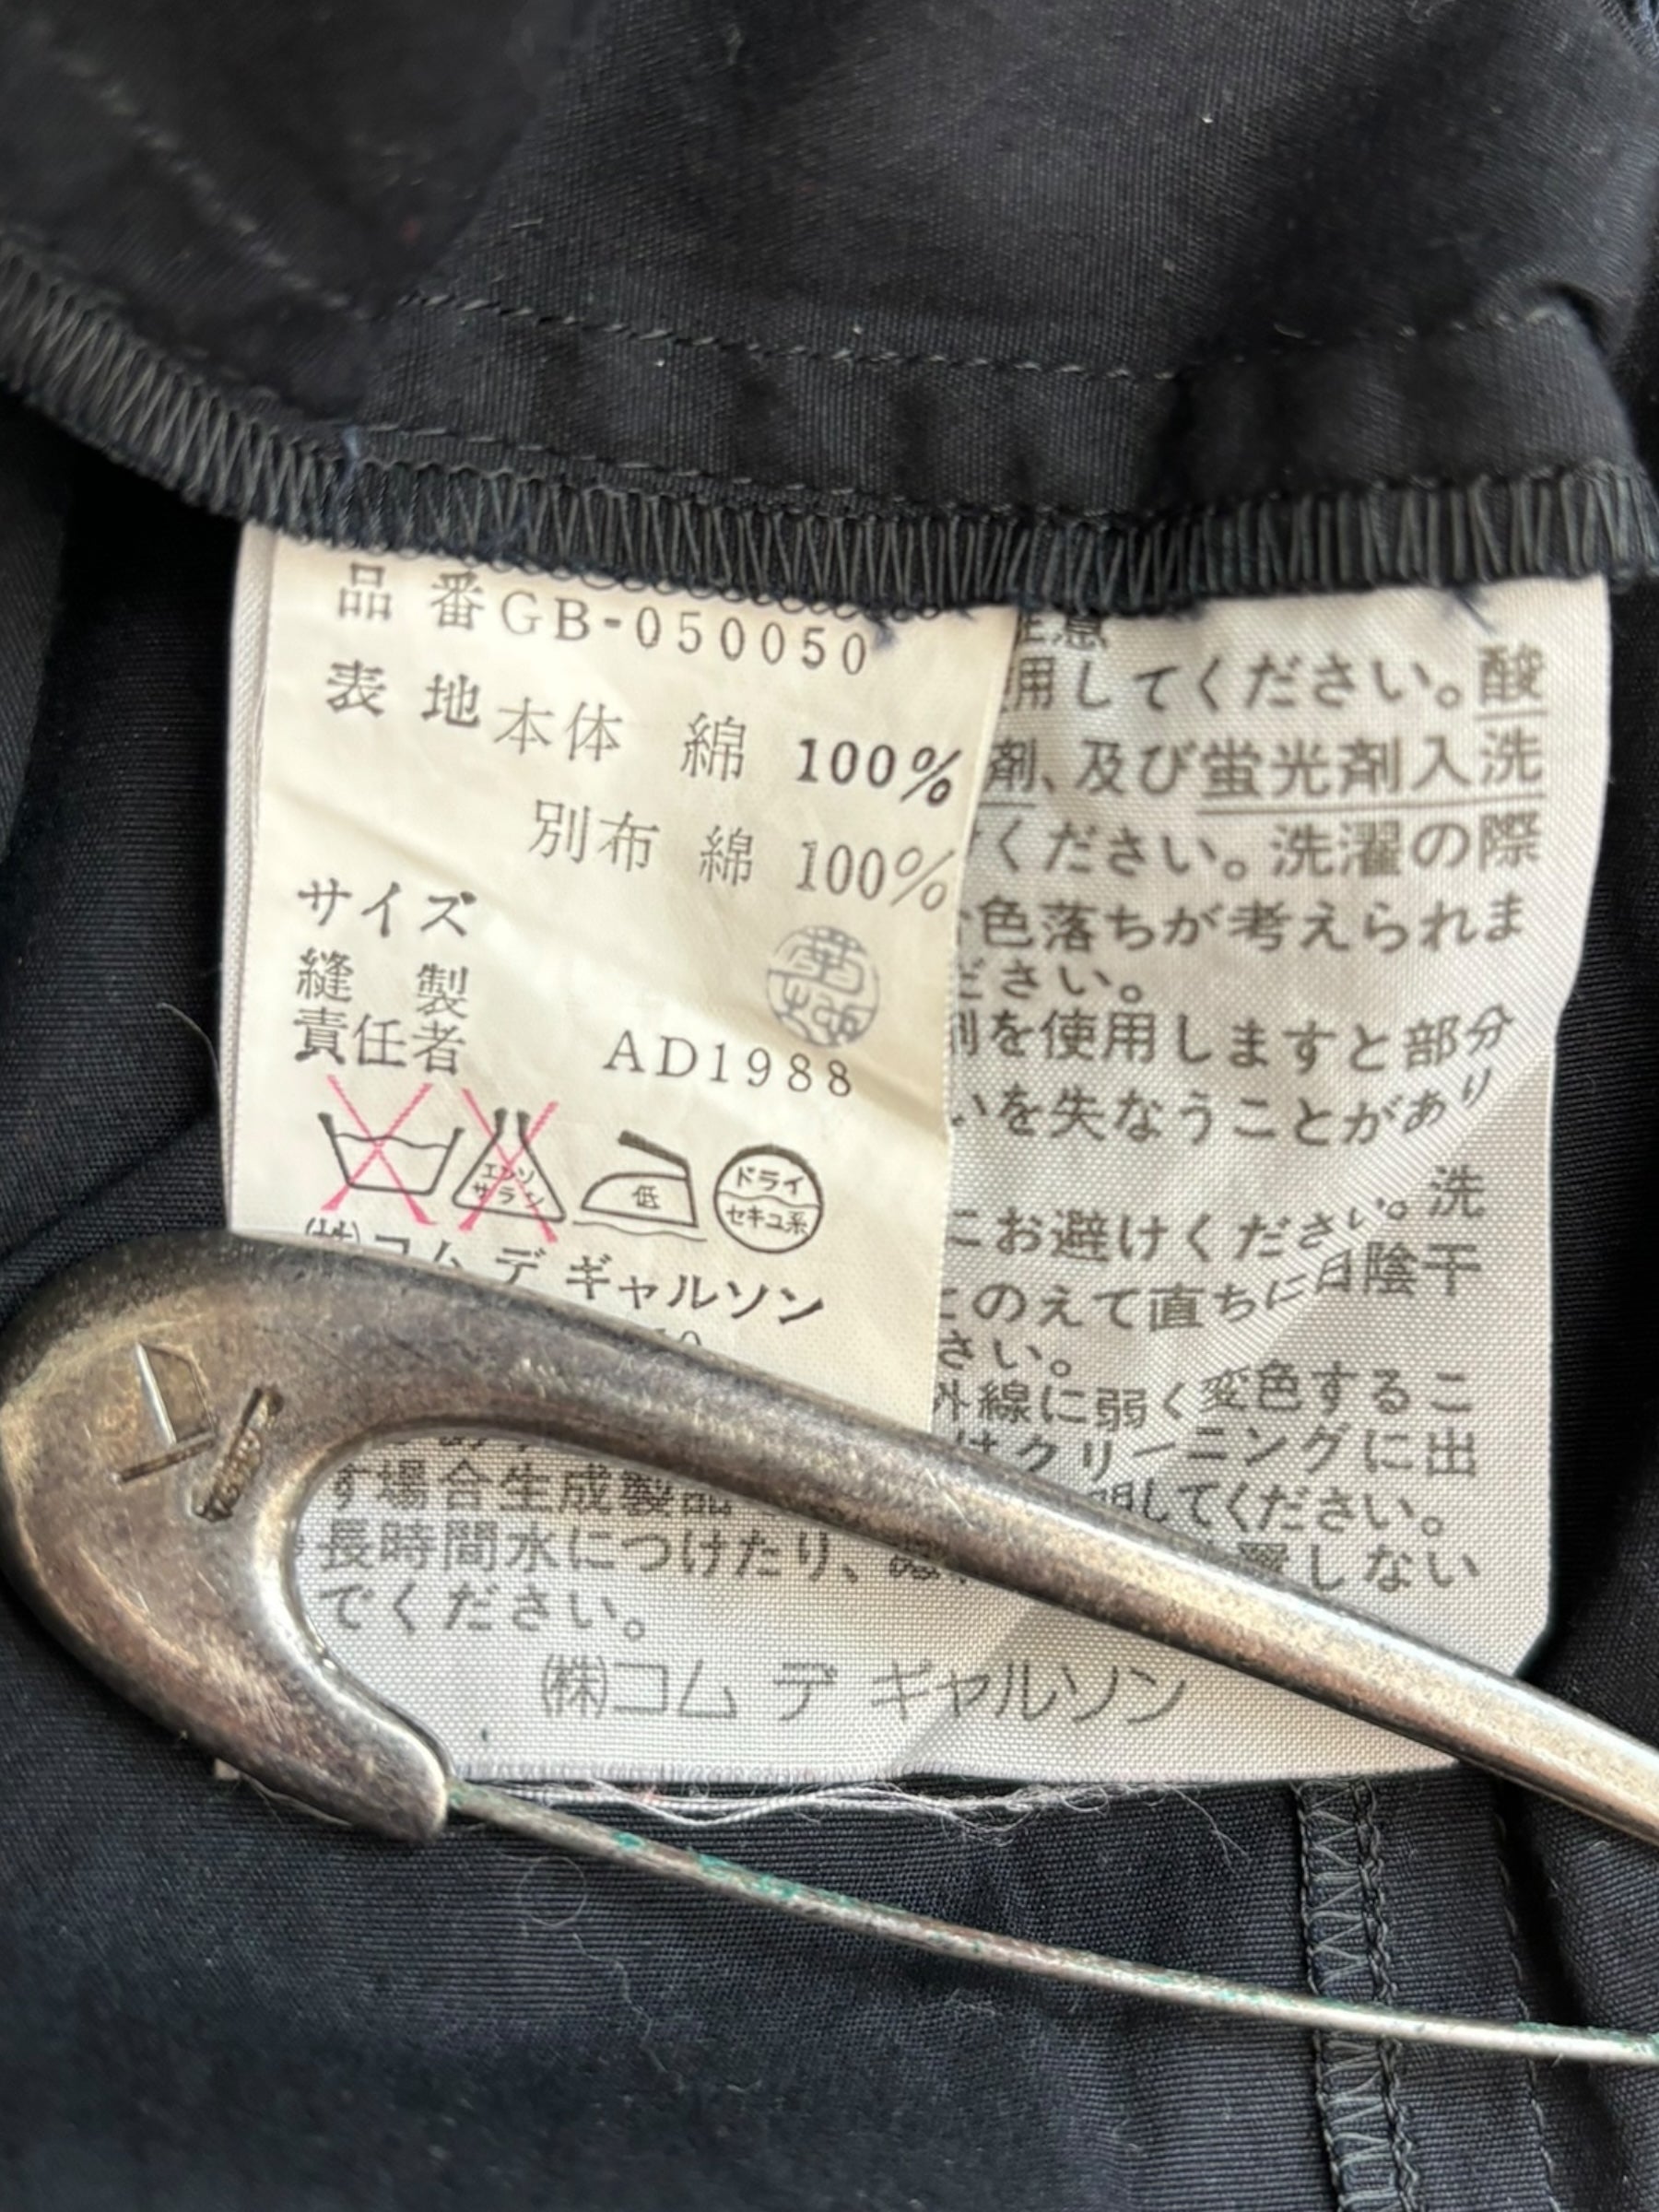 品 番 GB-050050
表 地 本体 綿 100%
別布 綿 100%
サイズ
縫 製
責任者
AD1988
エンソ
サラシ
低
ドライ
セキユ系
㈱コム デ ギャルソン
用してください。酸
剤、及び蛍光剤入洗
ください。洗濯の際
色落ちが考えられま
ださい。
剤を使用しますと部分
いを失なうことがあり
にお避けください。洗
このえて直ちに日陰干
さい。
外線に弱く変色するこ
はクリーニングに出
す場合生成製品 明してください。
長時間水につけたり、 しない
でください。
㈱コム デ ギャルソン